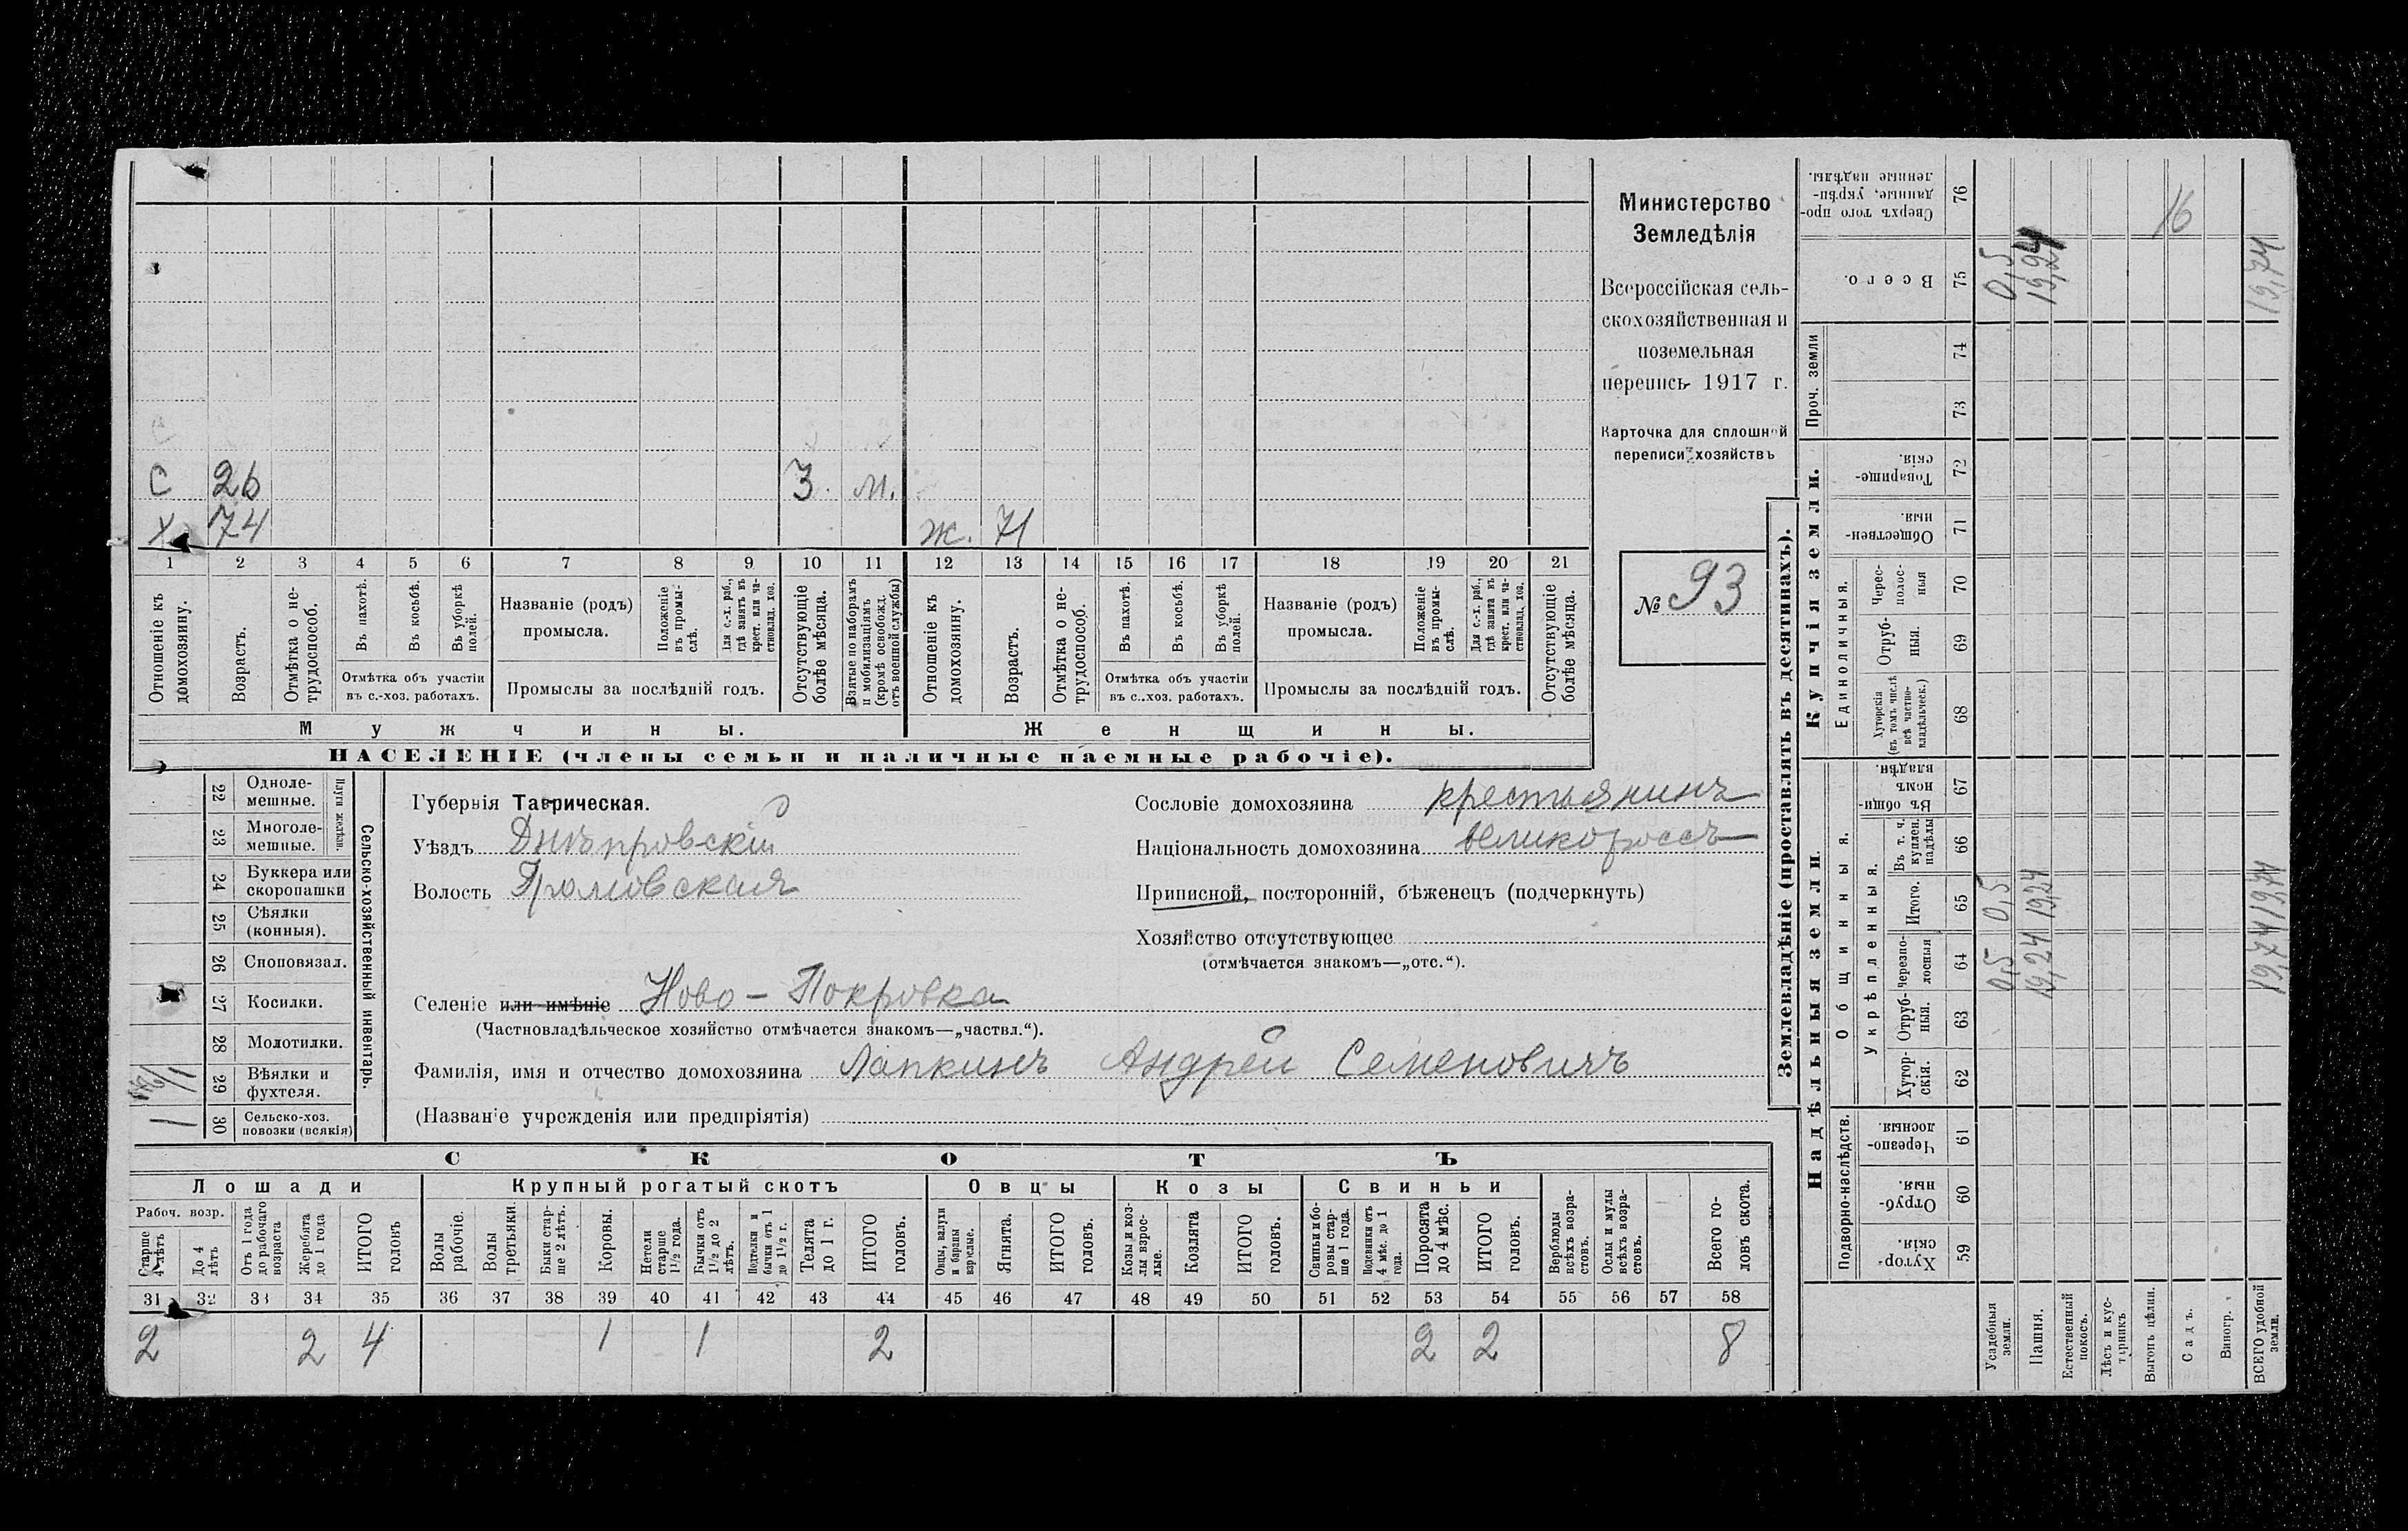 Министерство
Земледѣлія
Всероссійская сель-
скохозяйственная и
поземельная
перепись 1917 г.
Карточка для сплошной
переписи хозяйствъ
№ 93
С 26 3. м.
Х 74 ж. 71
1 2 3 4 5 6 7 8 9 10 11 12 13 14 15 16 17 18 19 20 21
Отношеніе къ домохозяину.
Возрастъ.
Отмѣтка о не-трудоспособ.
Въ пахотѣ.
Въ косьбѣ.
Въ уборкѣ полей.
Отмѣтка объ участіи
въ с.-хоз. работахъ.
Названіе (родъ)
промысла.
Положеніе въ промы-слѣ.
Для с.-х. раб., гдѣ занятъ въ крест. или ча-стновлад. хоз.
Промыслы за послѣдній годъ.
Отсутствующіе болѣе мѣсяца.
Взятые по наборамъ и мобилизаціямъ (кромѣ освобожд. отъ военной службы)
Отношеніе къ домохозяину.
Возрастъ.
Отмѣтка о не-трудоспособ.
Въ пахотѣ.
Въ косьбѣ.
Въ уборкѣ полей.
Отмѣтка объ участіи
въ с.-хоз. работахъ.
Названіе (родъ)
промысла.
Положеніе въ промы-слѣ.
Для с.-х. раб., гдѣ занята въ крест. или ча-стновлад. хоз.
Промыслы за послѣдній годъ.
Отсутствующіе болѣе мѣсяца.
Мужчины. Женщины.
НАСЕЛЕНІЕ (члены семьи и наличные наемные рабочіе).
Сельско-хозяйственный инвентарь.
Плуги желѣзн.
22 Одноле-мешные.
23 Многоле-мешные.
24 Буккера или скоропашки
25 Сѣялки (конныя).
26 Сноповязал.
27 Косилки.
28 Молотилки.
29 Вѣялки и фухтеля.
30 Сельско-хоз. повозки (всякія) 1
Губернія Таврическая.
Уѣздъ Днѣпровскій
Волость Громовская
Селеніе или имѣніе Ново-Покровка
(Частновладѣльческое хозяйство отмѣчается знакомъ—„частвл.“).
Фамилія, имя и отчество домохозяина Лапкинъ Андрей Семеновичъ
(Названіе учрежденія или предпріятія)
Сословіе домохозяина крестьянинъ
Національность домохозяина великороссъ
Приписной, посторонній, бѣженецъ (подчеркнуть)
Хозяйство отсутствующее
(отмѣчается знакомъ—„отс.“).
СКОТЪ
Лошади Крупный рогатый скотъ Овцы Козы Свиньи
Рабоч. возр.
Старше 4 лѣтъ
До 4 лѣтъ
Отъ 1 года до рабочаго возраста
Жеребята до 1 года
ИТОГО головъ
Волы рабочіе.
Волы третьяки.
Быки стар-ше 2 лѣтъ.
Коровы.
Нетели старше 1 1/2 года.
Бычки отъ 1 1/2 до 2 лѣтъ.
Подтелки и бычки отъ 1 до 1 1/2 г.
Телята до 1 г.
ИТОГО головъ.
Овцы, валухи и бараны взрослые.
Ягнята.
ИТОГО головъ.
Козы и коз-лы взрос-лые.
Козлята
ИТОГО головъ.
Свиньи и бо-ровы стар-ше 1 года.
Подсвинки отъ 4 мѣс. до 1 года.
Поросята до 4 мѣс.
ИТОГО головъ.
Верблюды всѣхъ возра-стовъ.
Ослы и мулы всѣхъ возра-стовъ.
Всего го-ловъ скота.
31 32 33 34 35 36 37 38 39 40 41 42 43 44 45 46 47 48 49 50 51 52 53 54 55 56 57 58
2 2 4 1 1 2 2 2 8
Землевладѣніе (проставлять въ десятинахъ).
Надѣльныя земли. Купчія земли.
Подворно-наслѣдств.
Общинныя.
Укрѣпленныя.
Единоличныя.
Проч. земли
59 Хутор-скія.
60 Отруб-ныя.
61 Черезпо-лосныя.
62 Хутор-скія.
63 Отруб-ныя.
64 Черезпо-лосныя 0,5 19,24 19,74
65 Итого. 0,5 19,24 19,74
66 Въ т. ч. куплен. надѣлы
67 Въ общи-номъ владѣн.
68 Хуторскія (въ томъ числѣ всѣ частно-владѣльческ.)
69 Отруб-ныя.
70 Черес-полос-ныя
71 Обществен-ныя.
72 Товарище-скія.
73
74
75 Всего. 0,5 19,24 19,74
76 Сверхъ того про-данные, укрѣп-ленные надѣлы. 16
Усадебныя земли.
Пашня.
Естественный покосъ.
Лѣсъ и кус-тарникъ
Выгонъ цѣлин.
Садъ.
Виногр.
ВСЕГО удобной земли.